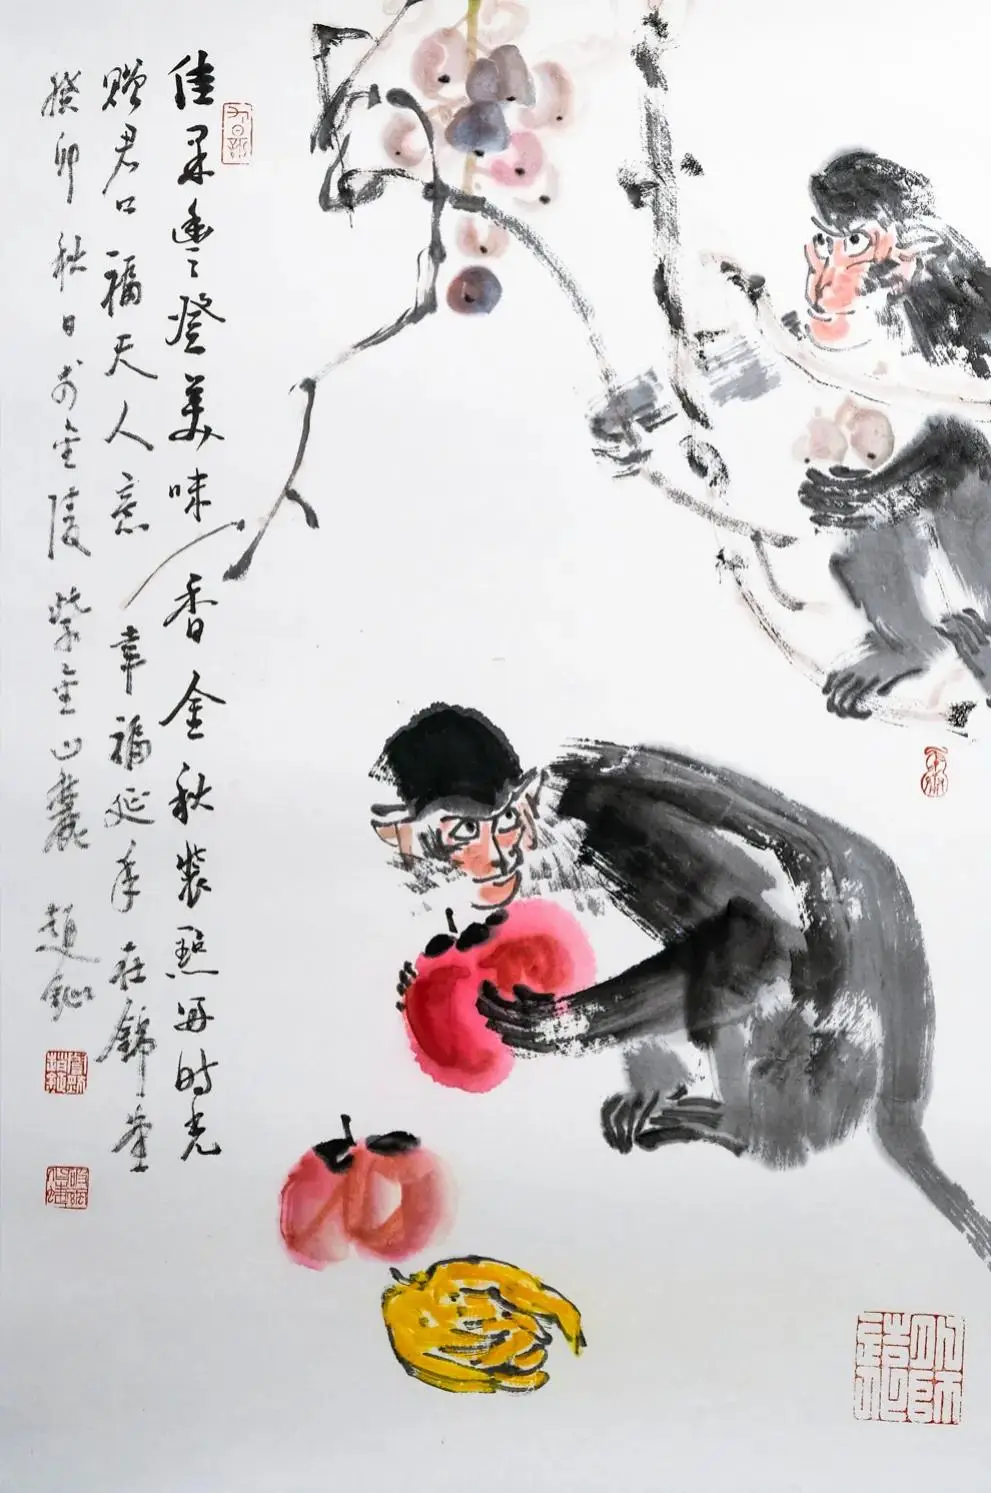 佳果豐登美味香金秋裝點时光
赠君口福天人意幸福延年在錦堂
癸卯秋日於金陵紫金山麓 趙